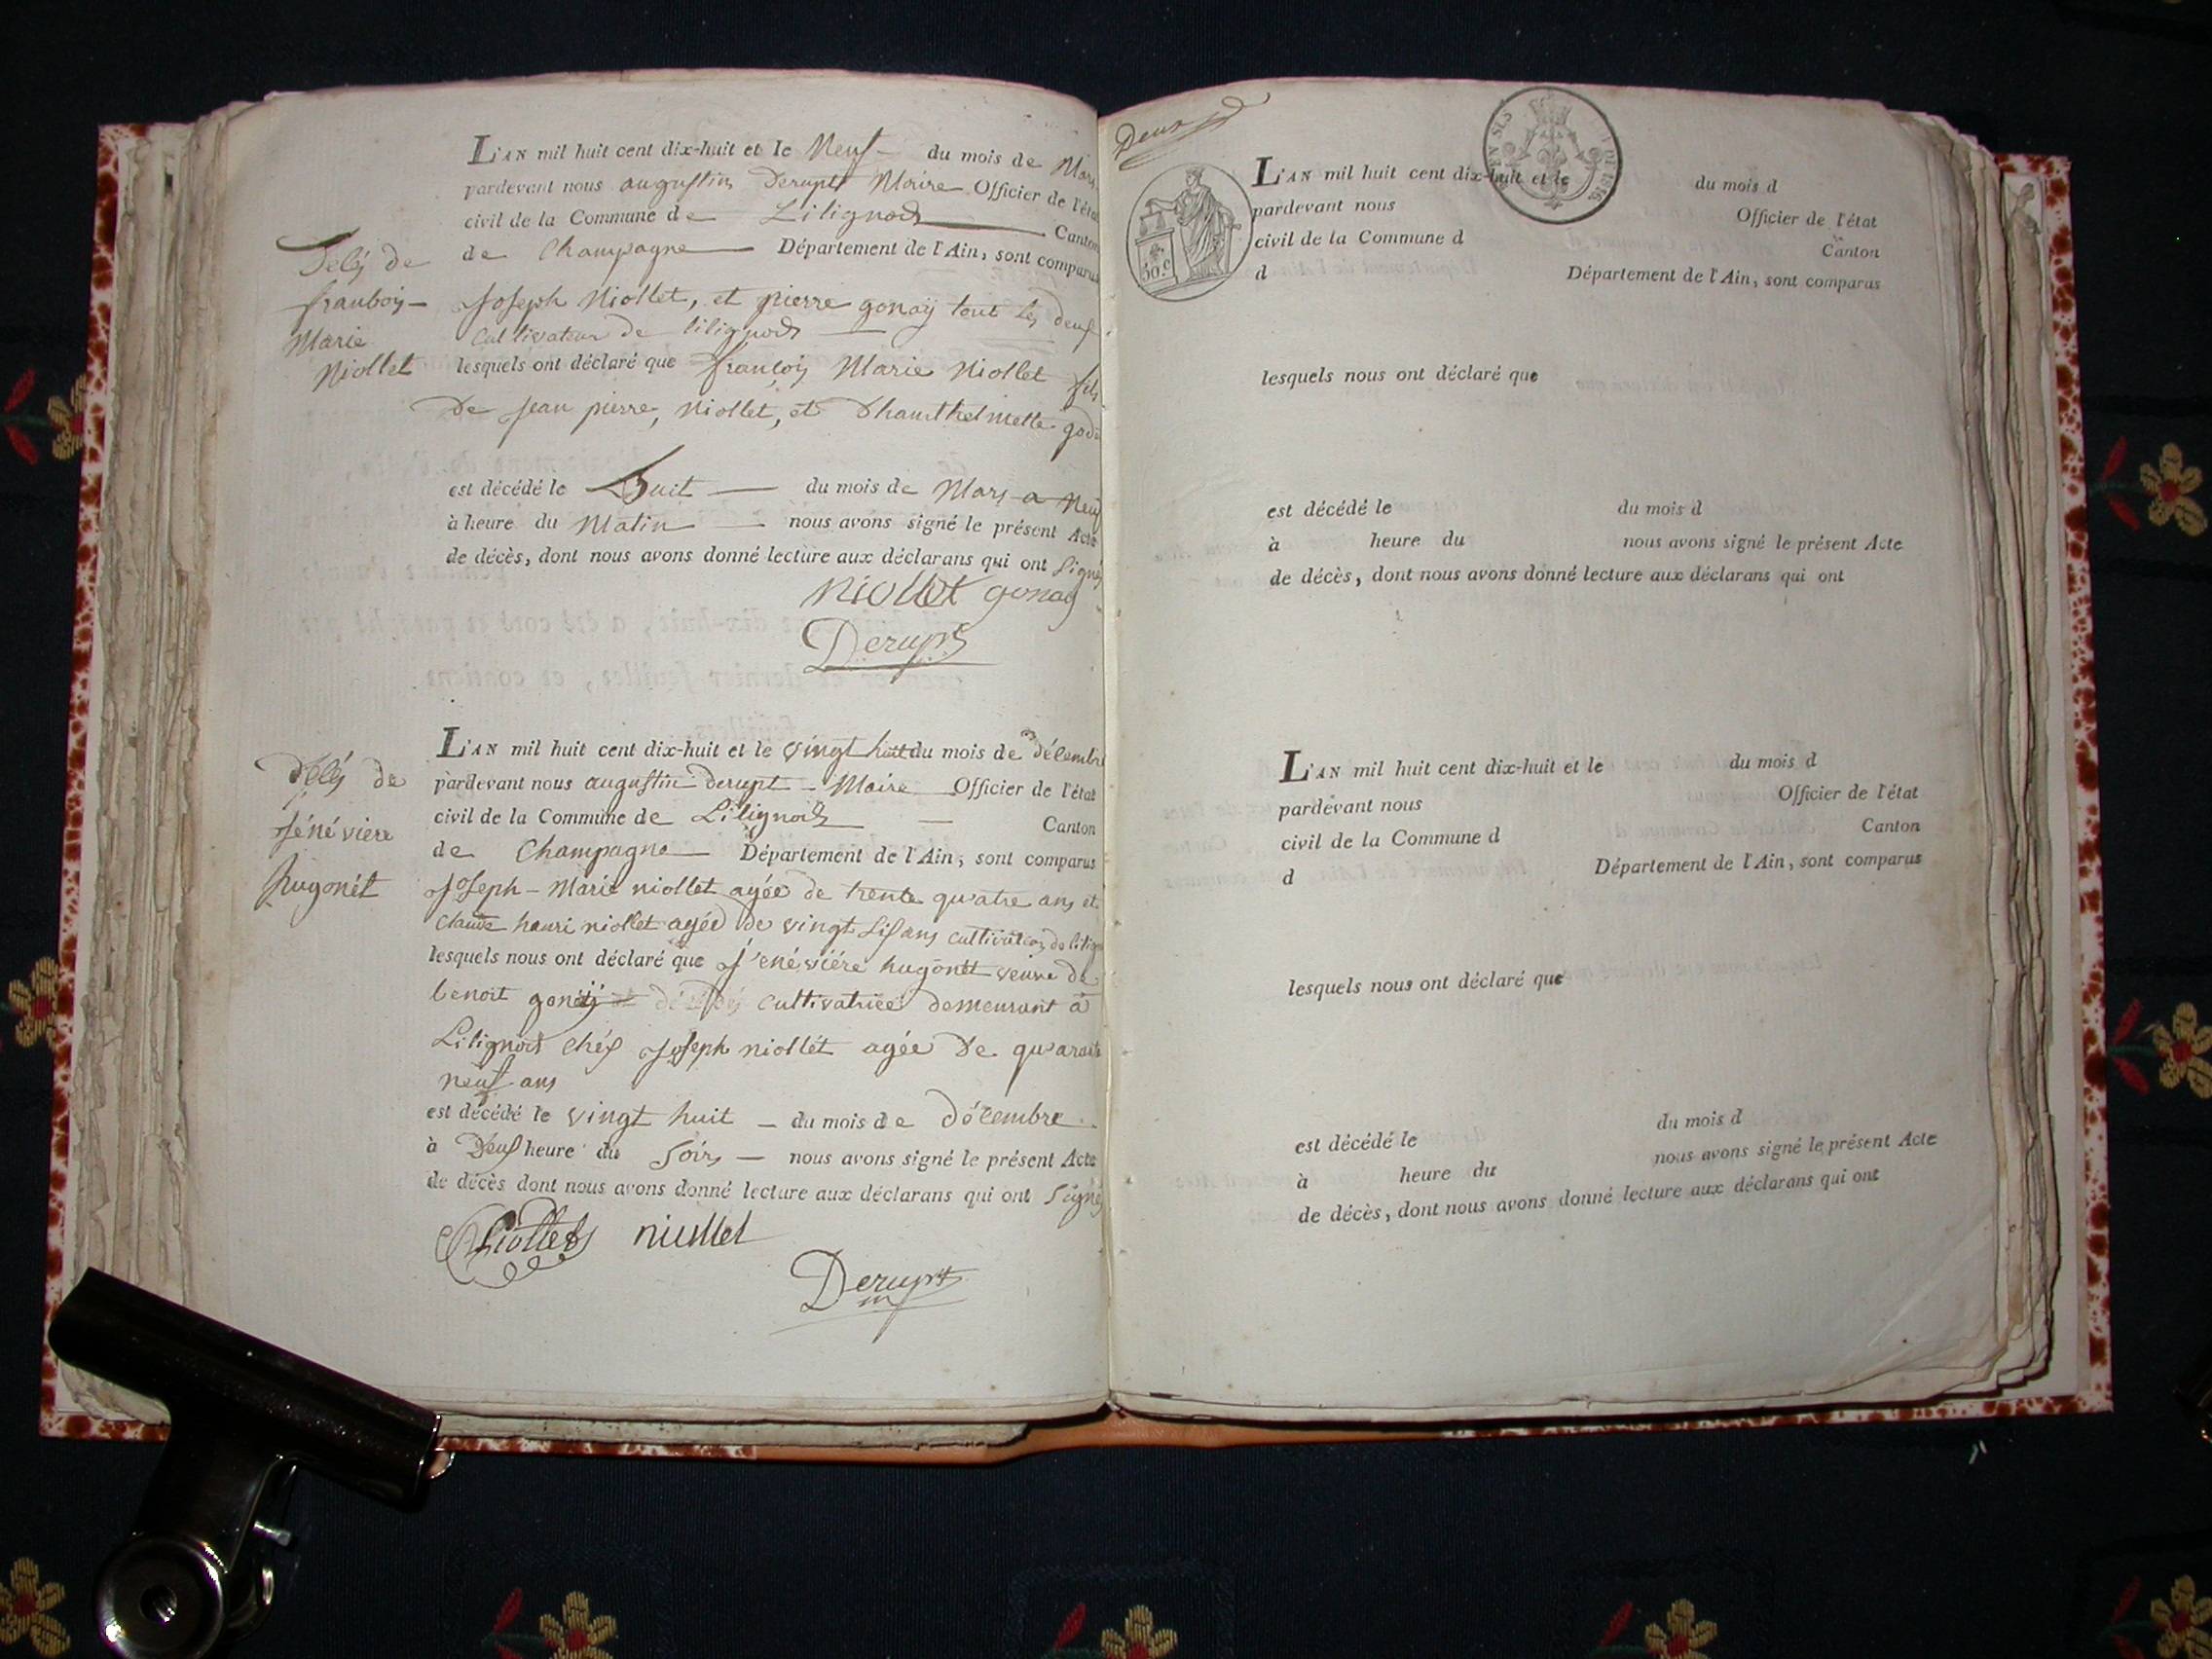 Délés de
françois
Marie
Niollet
L'AN mil huit cent dix-huit et le Neuf du mois de Mars
pardevant nous augustin Derupt Maire Officier de l'état
civil de la Commune de Lilignods Canton
de Champagne Département de l'Ain, sont comparus
Joseph Niollet, et pierre gonay tout les deux
Cultivateur de lilignods
lesquels ont déclaré que françois Marie Niollet fils
De Jean pierre, Niollet, et
est décédé le huit du mois de Mars a Neuf
à heure du Matin nous avons signé le présent Acte
de décès, dont nous avons donné lecture aux déclarans qui ont signés
Niollet gonay
Derupt
Délés de
Jénéviere
hugonét
L'AN mil huit cent dix-huit et le vingt huit du mois de décembre
pardevant nous augustin derupt Maire Officier de l'état
civil de la Commune de Lilignods Canton
de Champagne Département de l'Ain, sont comparus
Joseph-Marie niollet agée de trente quatre ans et
Claude hanri niollet agée de vingt sis ans cultivateur de
lesquels nous ont déclaré que Jénéviére hugonét veuve de
benoit cultivatrice demeurant à
Lilignods chéz Joseph niollét agée De quarante
neuf ans
est décédé le vingt huit du mois de décembre
à Deux heure du Soir nous avons signé le présent Acte
de décès dont nous avons donné lecture aux déclarans qui ont signé
Niollet niollet
Derupt
Deux
50 c
L'AN mil huit cent dix-huit et le du mois d
pardevant nous Officier de l'état
civil de la Commune d Canton
d Département de l'Ain, sont comparus
lesquels nous ont déclaré que
est décédé le du mois d
à heure du nous avons signé le présent Acte
de décès, dont nous avons donné lecture aux déclarans qui ont
L'AN mil huit cent dix-huit et le du mois d
pardevant nous Officier de l'état
civil de la Commune d Canton
d Département de l'Ain, sont comparus
lesquels nous ont déclaré que
est décédé le du mois d
à heure du nous avons signé le présent Acte
de décès, dont nous avons donné lecture aux déclarans qui ont